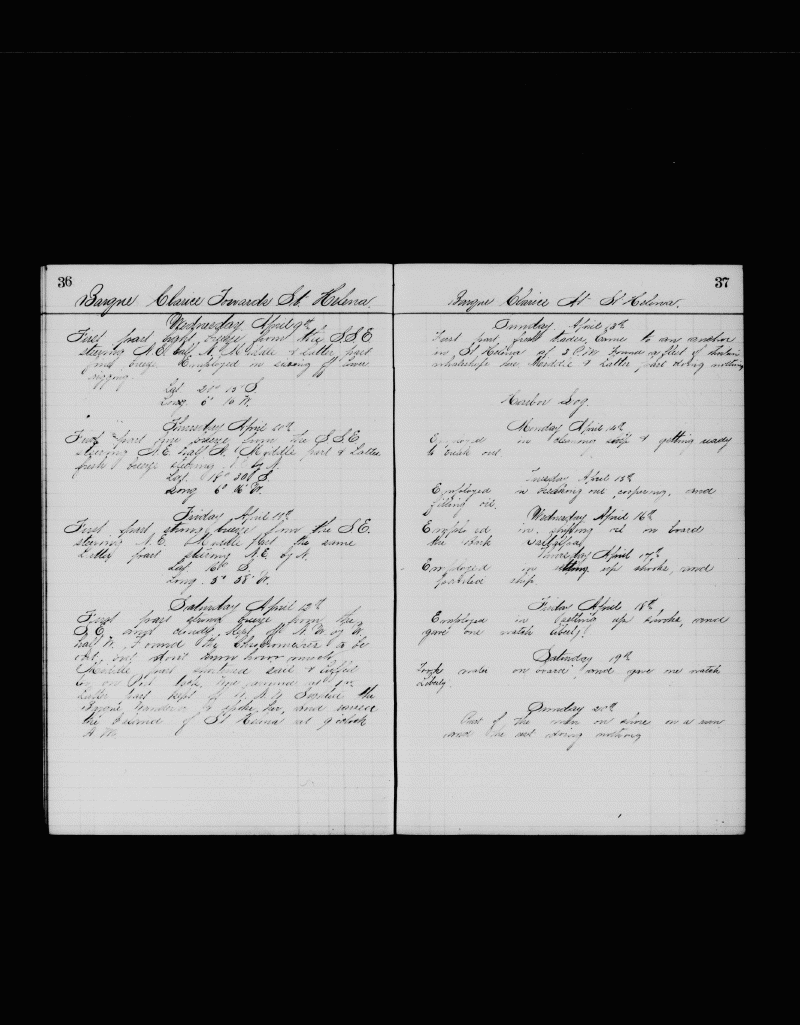 36
Barque Clarice Towards St. Helena.
Wednesday April 9th
First part light breeze from the SSE
steering N.E. half N. Middle & Latter part
fine breeze. Employed in sending off lower
rigging
Lat 20° 15' S.
Long 6° 16 W.
Thursday April 10th
First part fine breeze from the SSE
steering N.E. half N. Middle part & Latter
fresh breeze steering N.
Lat. 18° 30 S.
Long 6° 16' W.
Friday April 11th
First part strong breeze from the S.E.
steering N.E. Middle part the same
Latter part steering N.E. by N.
Lat 16° S.
Long. 5° 58' W.
Saturday April 12th
First part strong breeze from the
S.E. and cloudy kept off N.W. by W.
half W. Found the Chronometer to be
out, but don't know how much,
Middle part shortened sail & luffed
to on Port tack,
Latter part kept off the
Barque Wanderer to spoke her, and
the Island of St Helena at 9 o'clock
A.M.
37
Barque Clarice At St Helena.
Sunday April 13th
First part fresh trades, came to an anchor
in St Helena at 3 P.M. Found a fleet of
whaleships here Middle & Latter part doing nothing
Harbor Log.
Monday April 14th
Employed in cleaning ship & getting ready
to break out.
Tuesday April 15th
Employed in breaking out, coopering, and
filling oil.
Wednesday April 16th
Employed in oil on board
the Bark
Thursday April 17th
Employed in setting up shooks, and
painted ship.
Friday April 18th
Employed in setting up shooks, and
give one watch liberty!
Saturday 19th
Took water on board and give one watch
Liberty.
Sunday 20th
Part of the men on shore on a run
and the rest doing nothing